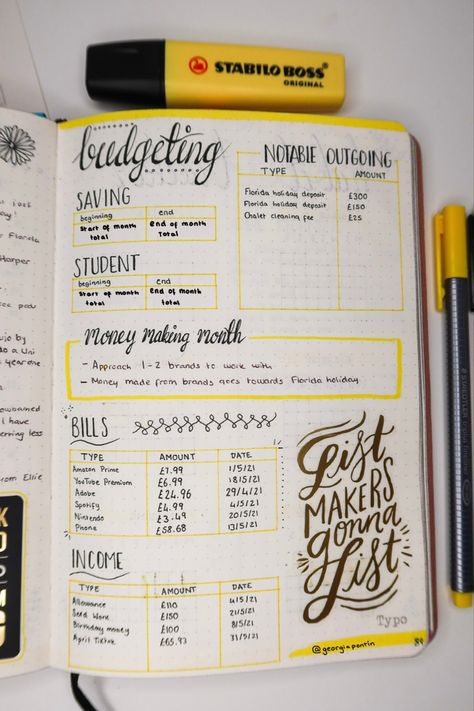 STABILO BOSS
ORIGINAL
budgeting
SAVING
beginning end
Start of month total End of month Total
STUDENT
beginning end
Start of month total End of month total
NOTABLE OUTGOING
TYPE AMOUNT
Florida holiday deposit £300
Florida holiday deposit £150
Chalet cleaning fee £25
Money Making Month
- Approach 1-2 brands to work with
- Money made from brands goes towards Florida holiday
BILLS
TYPE AMOUNT DATE
Amazon Prime £7.99 1/5/21
YouTube Premium £6.99 18/5/21
Adobe £24.96 29/4/21
Spotify £4.99 4/5/21
Nintendo £3.49 20/5/21
Phone £58.68 13/5/21
INCOME
TYPE AMOUNT DATE
Allowance £110 4/5/21
Seed Work £150 21/5/21
Birthday money £100 8/5/21
April TikTok £65.93 31/5/21
List
MAKERS
gonna
List
Typo
@georgiapontin
Florida
Harper
a Uni
year one
I have
less
from Ellie